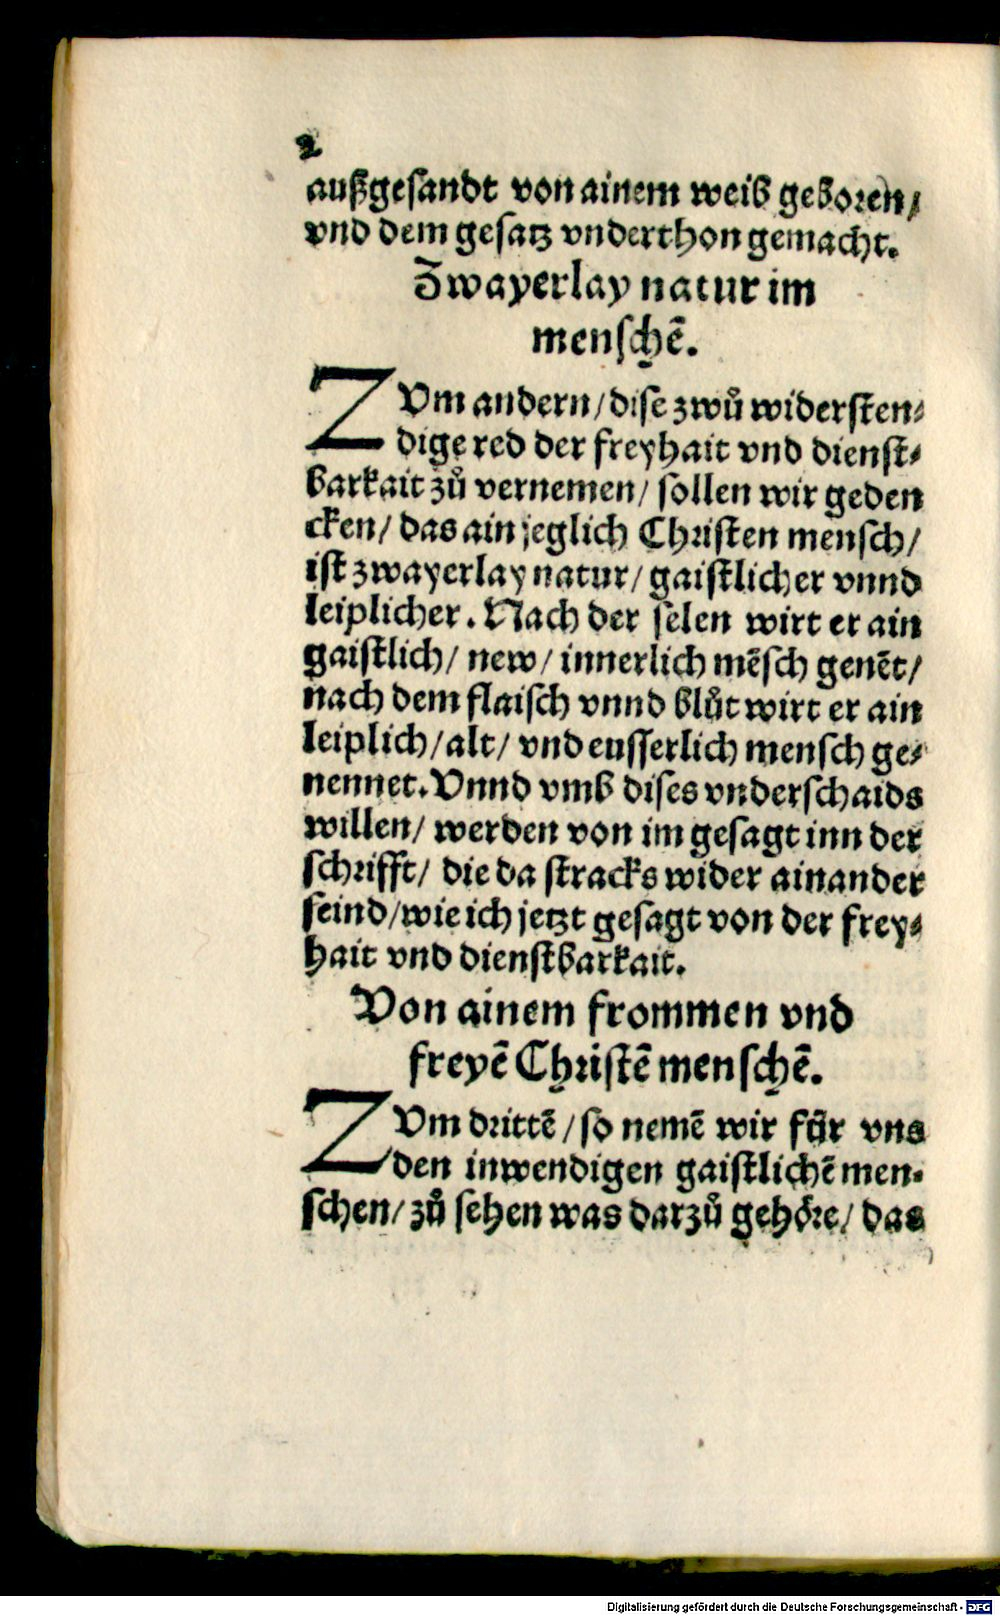 2
außgesandt von ainem weib geboren/
vnd dem gesatz vnderthon gemacht.
Zwayerlay natur im
menschē.
ZVm andern/ dise zwů widersten⸗
dige red der freyhait vnd dienst⸗
barkait zů vernemen/ sollen wir geden
cken/ das ain jeglich Christen mensch/
ist zwayerlay natur/ gaistlicher vnnd
leiplicher. Nach der selen wirt er ain
gaistlich/ new/ innerlich mēsch genēt/
nach dem flaisch vnnd blůt wirt er ain
leiplich/ alt/ vnd eusserlich mensch ge⸗
nennet. Vnnd vmb dises vnderschaids
willen/ werden von im gesagt inn der
schrifft/ die da stracks wider ainander
seind/ wie ich jetzt gesagt von der frey⸗
hait vnd dienstbarkait.
Von ainem frommen vnd
freyē Christē menschē.
ZVm drittē/ so nemē wir für vns
den inwendigen gaistlichē men⸗
schen/ zů sehen was darzů gehöre/ das
Digitalisierung gefördert durch die Deutsche Forschungsgemeinschaft - DFG